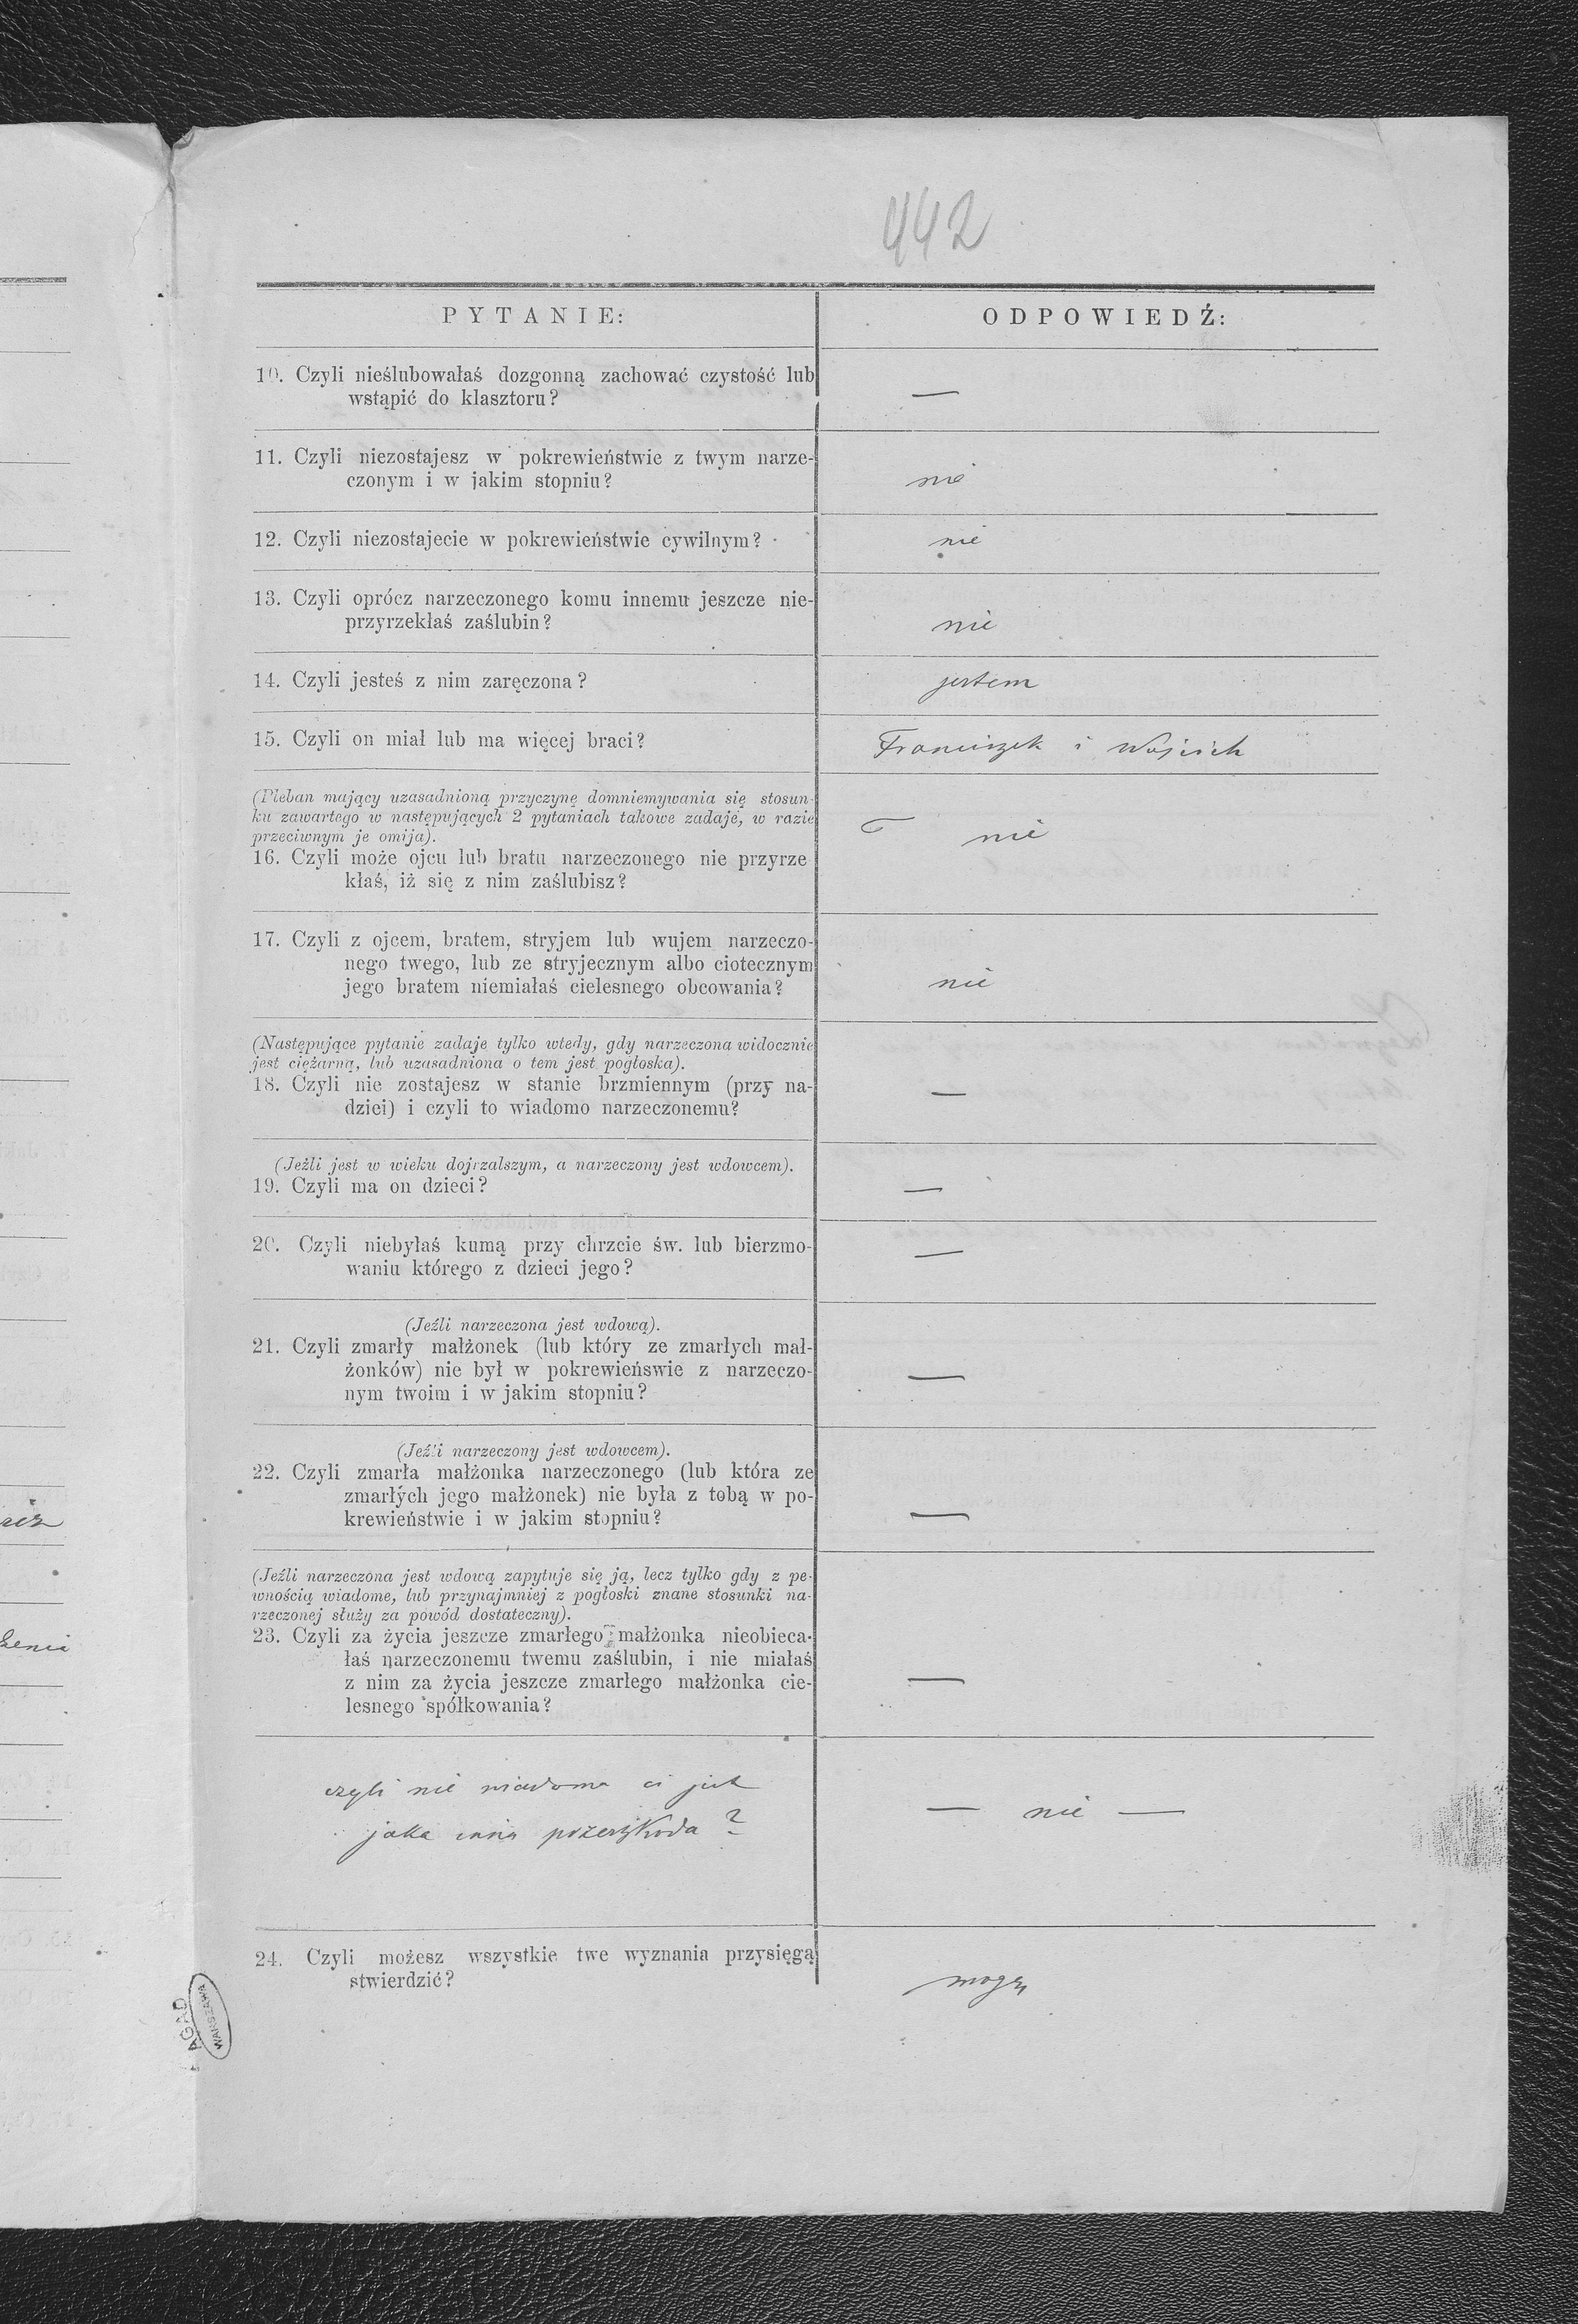 442
PYTANIE:
ODPOWIEDŹ:
10. Czyli nieślubowałaś dozgonną zachować czystość lub
wstąpić do klasztoru?
—
11. Czyli niezostajesz w pokrewieństwie z twym narze-
czonym i w jakim stopniu?
nie
12. Czyli niezostajecie w pokrewieństwie cywilnym?
nie
13. Czyli oprócz narzeczonego komu innemu jeszcze nie-
przyrzekłaś zaślubin?
nie
14. Czyli jesteś z nim zaręczona?
jestem
15. Czyli on miał lub ma więcej braci?
Franciszek i Wojciech
(Pleban mający uzasadnioną przyczynę domniemywania się stosun-
ku zawartego w następujących 2 pytaniach takowe zadaje, w razie
przeciwnym je omija).
16. Czyli może ojcu lub bratu narzeczonego nie przyrze
kłaś, iż się z nim zaślubisz?
nie
17. Czyli z ojcem, bratem, stryjem lub wujem narzeczo-
nego twego, lub ze stryjecznym albo ciotecznym
jego bratem niemiałaś cielesnego obcowania?
nie
(Następujące pytanie zadaje tylko wtedy, gdy narzeczona widocznie
jest ciężarną, lub uzasadniona o tem jest pogłoska).
18. Czyli nie zostajesz w stanie brzmiennym (przy na-
dziei) i czyli to wiadomo narzeczonemu?
—
(Jeżli jest w wieku dojrzalszym, a narzeczony jest wdowcem).
19. Czyli ma on dzieci?
—
20. Czyli niebyłaś kumą przy chrzcie św. lub bierzmo-
waniu którego z dzieci jego?
—
(Jeźli narzeczona jest wdową).
21. Czyli zmarły małżonek (lub który ze zmarłych mał-
żonków) nie był w pokrewieńswie z narzeczo-
nym twoim i w jakim stopniu?
—
(Jeźli narzeczony jest wdowcem).
22. Czyli zmarła małżonka narzeczonego (lub która ze
zmarłych jego małżonek) nie była z tobą w po-
krewieństwie i w jakim stopniu?
—
(Jeźli narzeczona jest wdową zapytuje się ją, lecz tylko gdy z pe-
wnością wiadome, lub przynajmniej z pogłoski znane stosunki na-
rzeczonej służy za powód dostateczny).
23. Czyli za życia jeszcze zmarłego małżonka nieobieca-
łaś narzeczonemu twemu zaślubin, i nie miałaś
z nim za życia jeszcze zmarłego małżonka cie-
lesnego spółkowania?
—
czyli nie wiadoma ci jest
jaka inna przeszkoda?
— nie —
24. Czyli możesz wszystkie twe wyznania przysięgą
stwierdzić?
mogę
AGAD
WARSZAWA